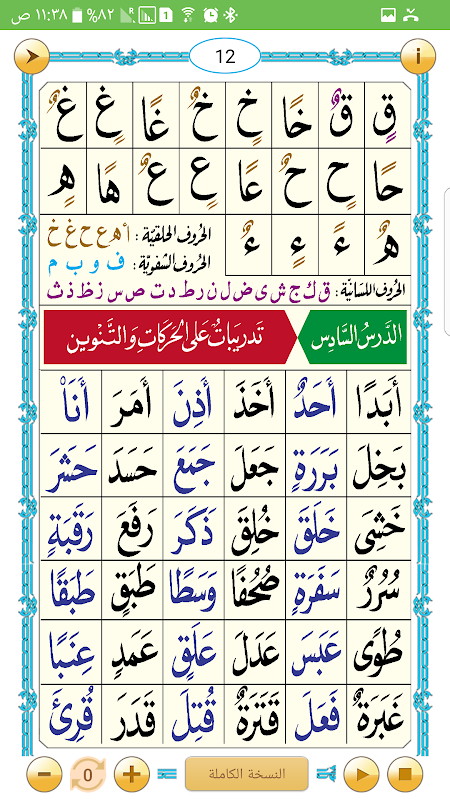 ١١:٣٨ ص ٨٢%
12
قٍ قٌ خًا خٍ خٌ غًا غٍ غٌ
حًا حٍ حٌ عًا عٍ عٌ هًا هٍ
هٌ ءً ءٍ ءٌ
الحروف الحلقيّة : أ ه ع ح غ خ
الحروف الشفويّة : ف و ب م
الحروف اللسانيّة : ق ك ج ش ي ض ل ن ر ط د ت ص س ز ظ ذ ث
الدَّرسُ السَّادِس تَدرِيبَاتٌ عَلَى الحَرَكَاتِ وَالتَّنْوِين
أَبَدًا أَحَدٌ أَخَذَ أَذِنَ أَمَرَ أَنَا۠
بَخِلَ بَرَرَةٍ جَعَلَ جَمَعَ حَسَدَ حَشَرَ
خَشِىَ خَلَقَ خُلِقَ ذَكَرَ رَفَعَ رَقَبَةٍ
سُرُرٌ سَفَرَةٍ صُحُفًا وَسَطًا طَبَقٍ طَبَقًا
طُوًى عَبَسَ عَدَلَ عَلَقٍ عَمَدٍ عِنَبًا
غَبَرَةٌ فَعَلَ قَتَرَةٌ قُتِلَ قَدَرَ قُرِئَ
0 النسخة الكاملة